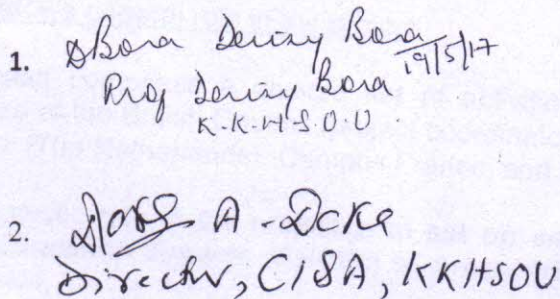 1. DBora Denizy Bora 19/5/17
Prof Denizy Bora
K.K.H.S.O.U.
2. A. Deka
Director, CISA, KKHSOU